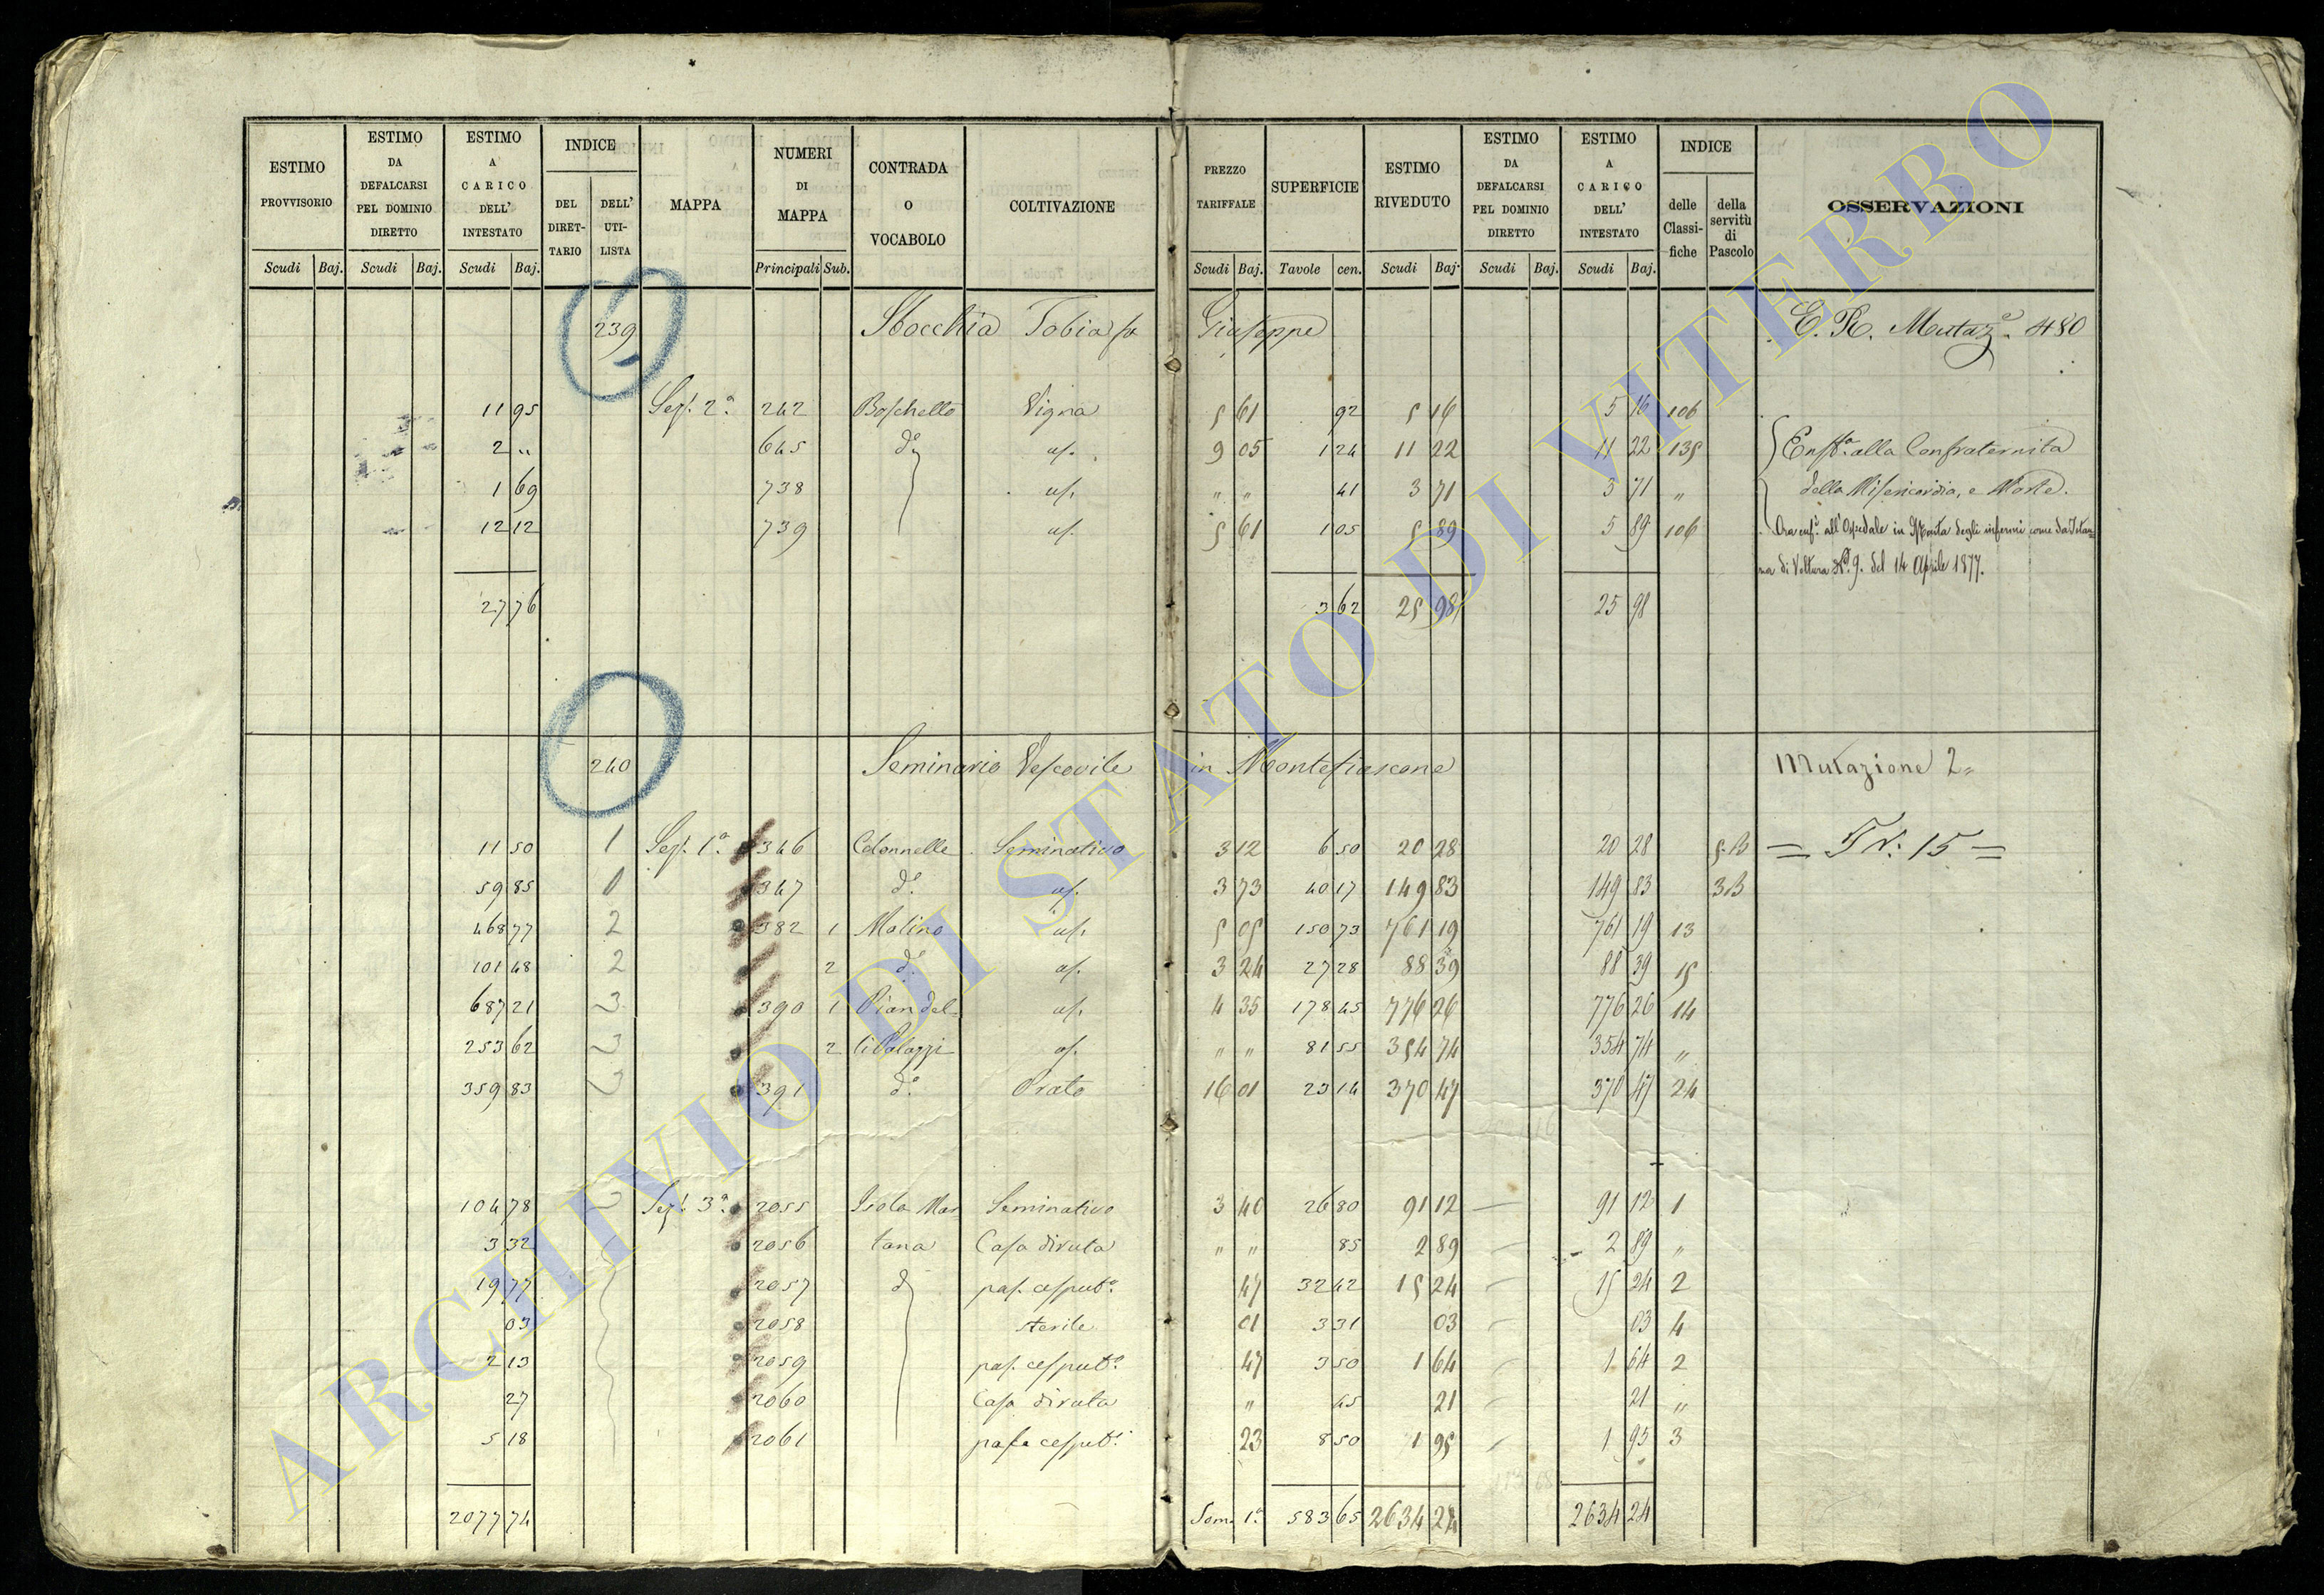 ESTIMO PROVVISORIO
ESTIMO DA DEFALCARSI PEL DOMINIO DIRETTO
ESTIMO A CARICO DELL' INTESTATO
INDICE
DEL DIRET- TARIO
DELL' UTI- LISTA
MAPPA
NUMERI DI MAPPA
CONTRADA O VOCABOLO
COLTIVAZIONE
PREZZO TARIFFALE
SUPERFICIE
ESTIMO RIVEDUTO
ESTIMO DA DEFALCARSI PEL DOMINIO DIRETTO
ESTIMO A CARICO DELL' INTESTATO
INDICE
delle Classi- fiche
della servitù di Pascolo
OSSERVAZIONI
Scudi Baj. Scudi Baj. Scudi Baj. Principali Sub. Scudi Baj. Tavole cen. Scudi Baj. Scudi Baj. Scudi Baj.
239 Tobia Giuseppe E. R. Mutaz.e 480
11 95 Sez. 2a. 242 Boschetto Vigna 5 61 92 5 16 5 16 106
2 " 645 do. us. 9 05 1 24 11 22 11 22 135 Enfta. alla Confraternita
1 69 738 us. " " 41 3 71 3 71 " della Misericordia, e Morte.
12 12 739 us. 5 61 1 05 5 89 5 89 106 Ora enfa. all'Ospedale in Monta degli infermi come da Istan=
za di Voltura No. 9. del 14 Aprile 1877.
27 76 3 62 25 98 25 98
240 Seminario Vescovile in Montefiascone Mutazione 2=
11 50 1 Sez. 1a. 346 Colonnelle Seminativo 3 12 6 50 20 28 20 28 5.B = Tr: 15 =
59 85 1 347 do. us. 3 73 40 17 149 83 149 83 3B
468 77 2 382 1 Molino us. 5 05 150 73 761 19 761 19 13
101 48 2 2 do. us. 3 24 27 28 88 39 88 39 15
687 21 3 390 1 Pian del- us. 4 35 178 45 776 26 776 26 14
253 62 3 2 li Palazzi us. " " 81 55 354 74 354 74 "
359 83 3 391 do. Prato 16 01 23 14 370 47 370 47 24
104 78 Sez. 3a. 2055 Isola Mar- Seminativo 3 40 26 80 91 12 — 91 12 1
3 32 2056 tana Casa diruta " " 85 2 89 — 2 89 "
19 77 2057 d pas. cesputo. 47 32 42 15 24 — 15 24 2
03 2058 sterile 01 3 31 03 — 03 4
2 13 2059 pas. cesputo. 47 3 50 1 64 — 1 64 2
27 2060 Casa diruta " 45 21 — 21 "
5 18 2061 cesputo. 23 8 50 1 95 — 1 95 3
2077 74 Som. 1a. 583 65 2634 24 2634 24
ARCHIVIO DI STATO DI VITERBO